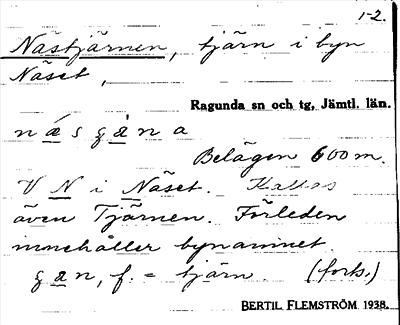 1-2.
Nästjärnen, tjärn i byn
Näset,
Ragunda sn och tg, Jämtl. län.
n ǽ s g æ̀ n a
Belägen 600 m.
V N i Näset. Kallas
även Tjärnen. Förleden
innehåller bynamnet.
g æ n, f. = tjärn (forts.)
BERTIL FLEMSTRÖM 1938.